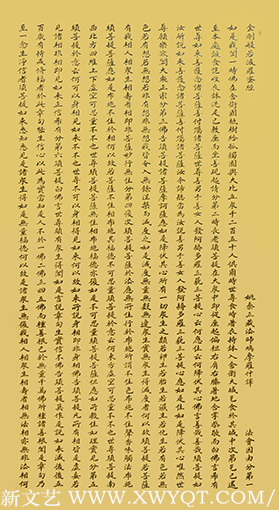 金剛般若波羅蜜經
姚秦三藏法師鳩摩羅什譯
法會因由分第一
如是我聞一時佛在舍衛國祇樹給孤獨園與大比丘眾千二百五十人俱爾時世尊食時著衣持鉢入舍衛大城乞食於其城中次第乞已還
至本處飯食訖收衣鉢洗足已敷座而坐善現起請分第二時長老須菩提在大眾中即從座起偏袒右肩右膝著地合掌恭敬而白佛言希有
世尊如來善護念諸菩薩善付囑諸菩薩世尊善男子善女人發阿耨多羅三藐三菩提心應云何住云何降伏其心佛言善哉善哉須菩提如
汝所說如來善護念諸菩薩善付囑諸菩薩汝今諦聽當為汝說善男子善女人發阿耨多羅三藐三菩提心應如是住如是降伏其心唯然世
尊願樂欲聞大乘正宗分第三佛告須菩提諸菩薩摩訶薩應如是降伏其心所有一切眾生之類若卵生若胎生若濕生若化生若有色若無
色若有想若無想若非有想非無想我皆令入無餘涅槃而滅度之如是滅度無量無數無邊眾生實無眾生得滅度者何以故須菩提若菩薩
有我相人相眾生相壽者相即非菩薩妙行無住分第四復次須菩提菩薩於法應無所住行於布施所謂不住色布施不住聲香味觸法布施
須菩提菩薩應如是布施不住於相何以故若菩薩不住相布施其福德不可思量須菩提於意云何東方虛空可思量不不也世尊須菩提南
西北方四維上下虛空可思量不不也世尊須菩提菩薩無住相布施福德亦復如是不可思量須菩提菩薩但應如所教住如理實見分第五
須菩提於意云何可以身相見如來不不也世尊不可以身相得見如來何以故如來所說身相即非身相佛告須菩提凡所有相皆是虛妄若
見諸相非相即見如來正信希有分第六須菩提白佛言世尊頗有眾生得聞如是言說章句生實信不佛告須菩提莫作是說如來滅後後五
百歲有持戒修福者於此章句能生信心以此為實當知是人不於一佛二佛三四五佛而種善根已於無量千萬佛所種諸善根聞是章句乃
至一念生淨信者須菩提如來悉知悉見是諸眾生得如是無量福德何以故是諸眾生無復我相人相眾生相壽者相無法相亦無非法相何
新文艺 / WWW.XWYQT.COM/